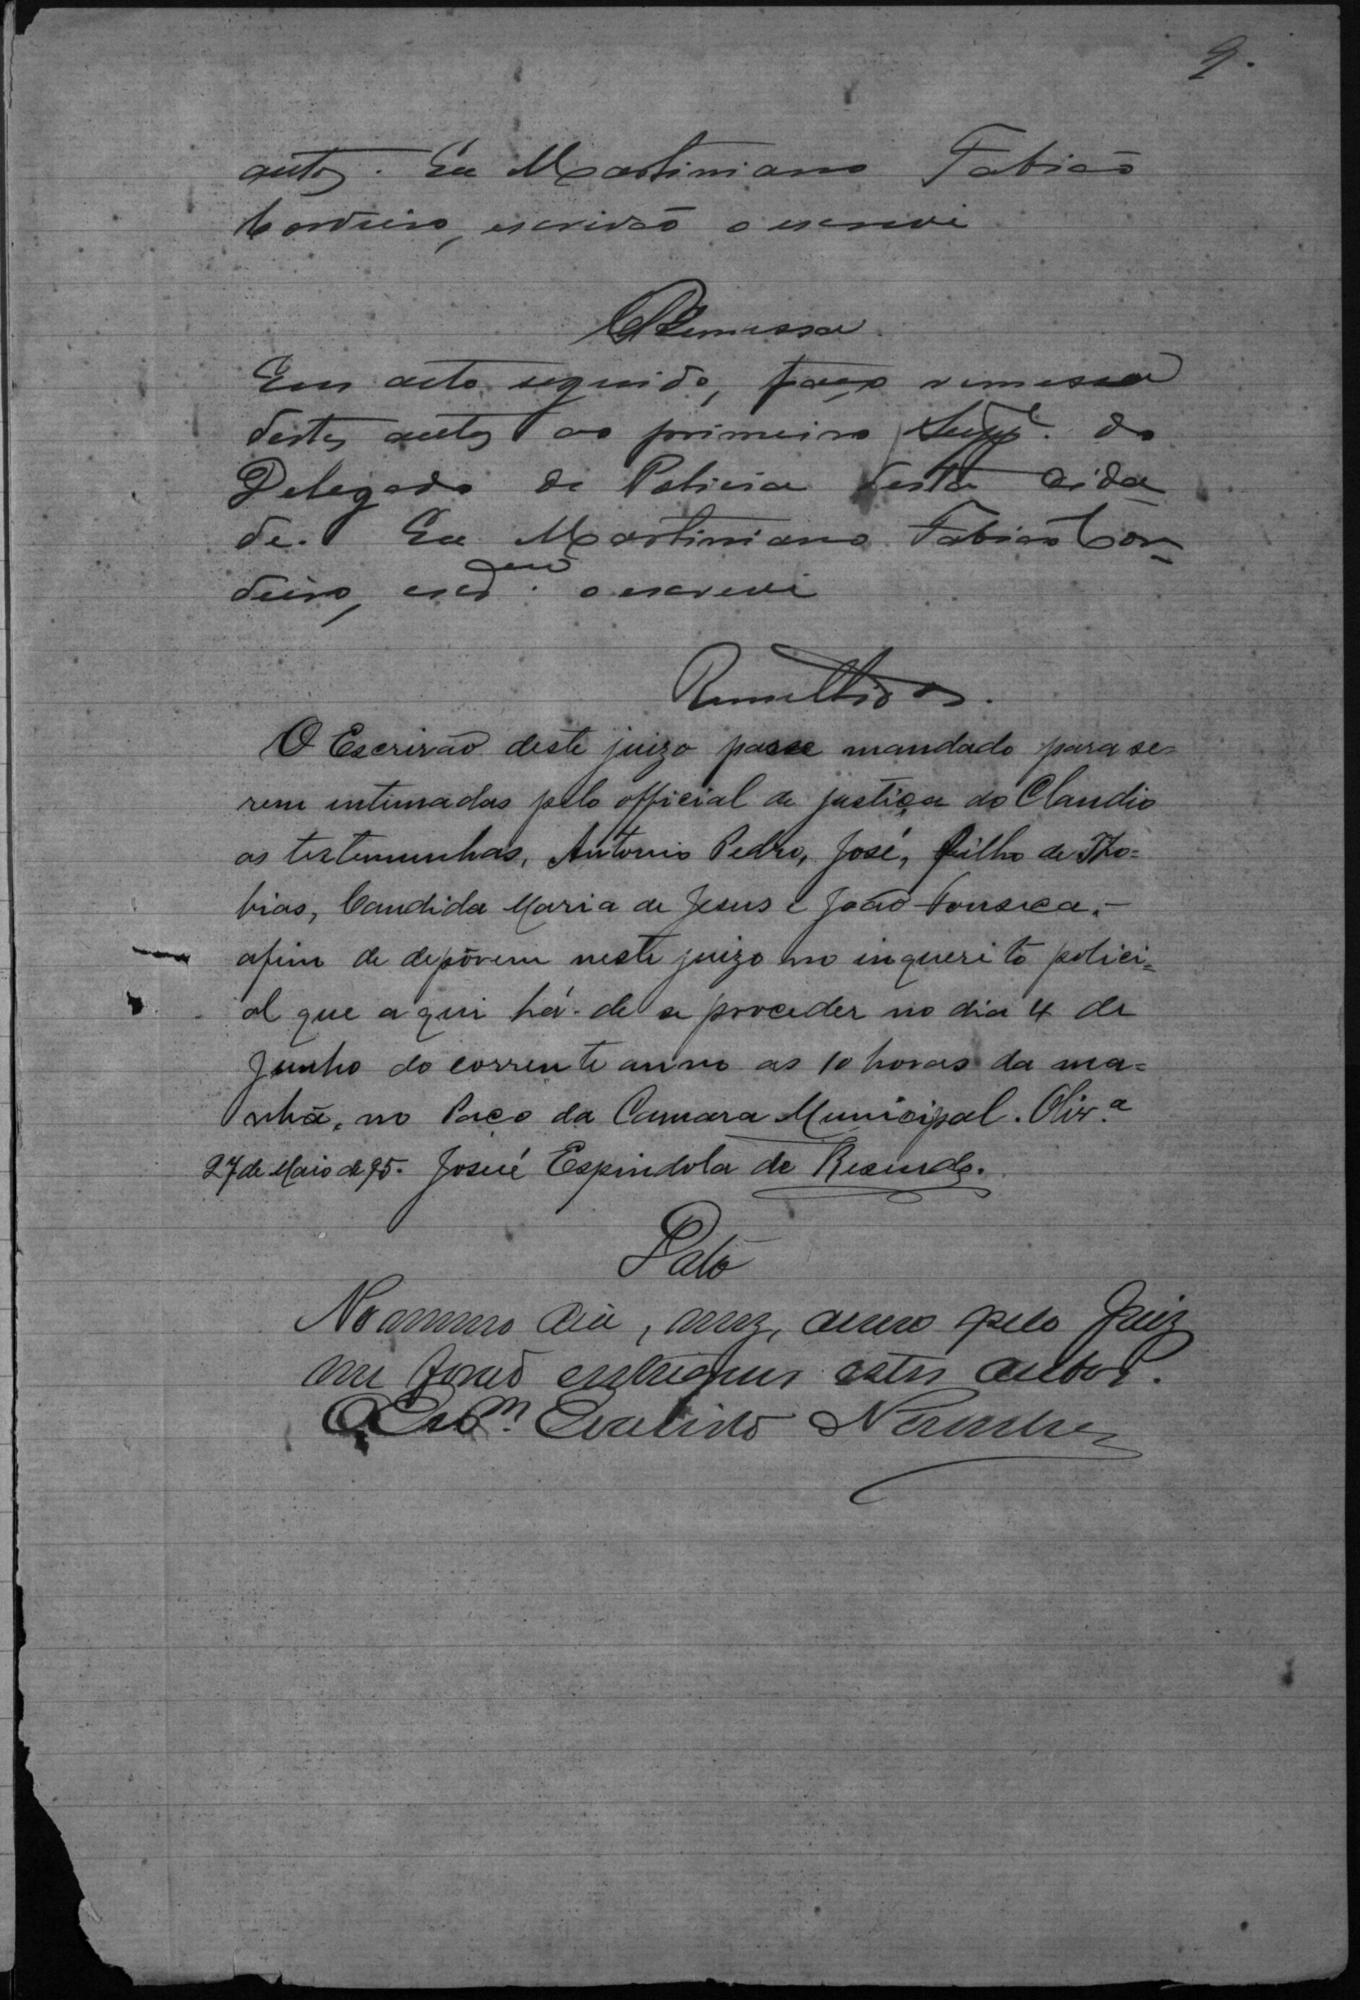 9.
autos. Eu Martiniano Fabião
Cordeiro, escrivão o escrevi
Remessa
Em acto seguido, faço remessa
destes autos ao primeiro Supp.e do
Delegado de Policia desta cida
de. Eu Martiniano Fabião Cor-
deiro, escrivão o escrevi
Remettidos.
O Escrivão deste juizo passe mandado para se=
rem intimadas pelo official de justiça do Claudio
as testemunhas, Antonio Pedro, José, filho de Tho=
bias, Candida Maria de Jesus e João Fonseca, —
afim de depôrem neste juizo no inquerito polici=
al que aqui há-de se proceder no dia 4 de
Junho do corrente anno as 10 horas da ma=
nhã, no Paço da Camara Municipal. Oliv.a
27 de Maio de 95. Josué Espindola de Resende.
Data
No mesmo dia, mez, anno pelo Juiz
me forão entregues estes autos.
O Esc.m Evaristo